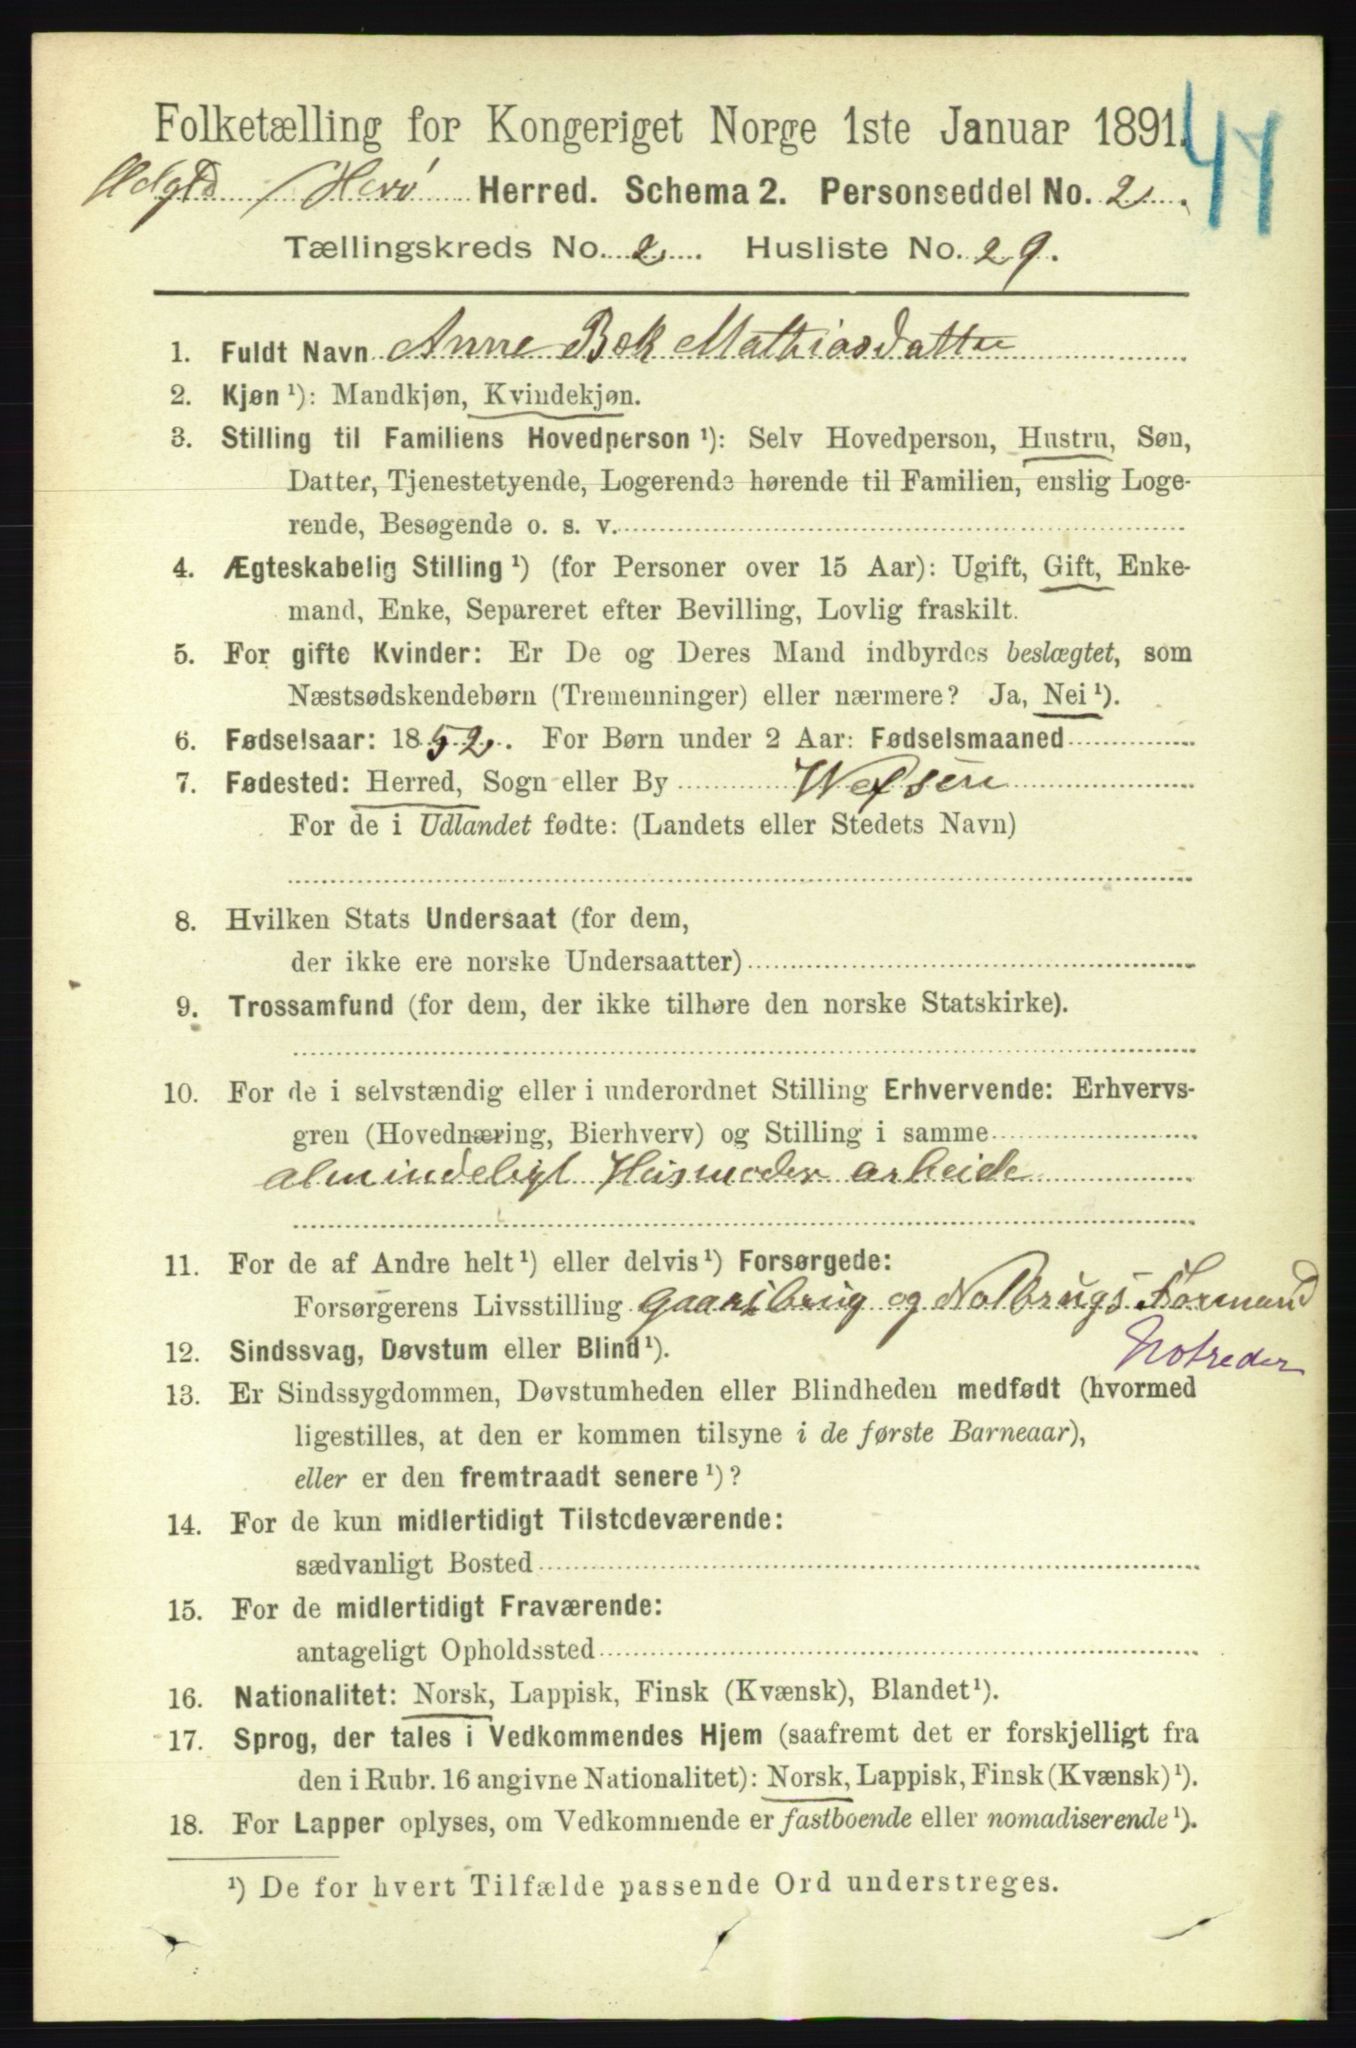 Folketælling for Kongeriget Norge 1ste Januar 1891.
44
/ Herø Herred. Schema 2. Personseddel No. 2.
Tællingskreds No. 2. Husliste No. 29.
1. Fuldt Navn Anne Bek Mathiasdatter
2. Kjøn ¹): Mandkjøn, Kvindekjøn.
3. Stilling til Familiens Hovedperson ¹): Selv Hovedperson, Hustru, Søn,
Datter, Tjenestetyende, Logerende hørende til Familien, enslig Loge-
rende, Besøgende o. s. v.
4. Ægteskabelig Stilling ¹) (for Personer over 15 Aar): Ugift, Gift, Enke-
mand, Enke, Separeret efter Bevilling, Lovlig fraskilt.
5. For gifte Kvinder: Er De og Deres Mand indbyrdes beslægtet, som
Næstsødskendebørn (Tremenninger) eller nærmere? Ja, Nei ¹).
6. Fødselsaar: 1852. For Børn under 2 Aar: Fødselsmaaned
7. Fødested: Herred, Sogn eller By Wefsen
For de i Udlandet fødte: (Landets eller Stedets Navn)
8. Hvilken Stats Undersaat (for dem,
der ikke ere norske Undersaatter)
9. Trossamfund (for dem, der ikke tilhøre den norske Statskirke).
10. For de i selvstændig eller i underordnet Stilling Erhvervende: Erhvervs-
gren (Hovednæring, Bierhverv) og Stilling i samme
almindeligt Husmoder arbeide
11. For de af Andre helt ¹) eller delvis ¹) Forsørgede:
Forsørgerens Livsstilling Gaardbrug og Notbrugs Formand
Notreder
12. Sindssvag, Døvstum eller Blind ¹).
13. Er Sindssygdommen, Døvstumheden eller Blindheden medfødt (hvormed
ligestilles, at den er kommen tilsyne i de første Barneaar),
eller er den fremtraadt senere ¹)?
14. For de kun midlertidigt Tilstedeværende:
sædvanligt Bosted
15. For de midlertidigt Fraværende:
antageligt Opholdssted
16. Nationalitet: Norsk, Lappisk, Finsk (Kvænsk), Blandet ¹).
17. Sprog, der tales i Vedkommendes Hjem (saafremt det er forskjelligt fra
den i Rubr. 16 angivne Nationalitet): Norsk, Lappisk, Finsk (Kvænsk) ¹).
18. For Lapper oplyses, om Vedkommende er fastboende eller nomadiserende ¹).
¹) De for hvert Tilfælde passende Ord understreges.